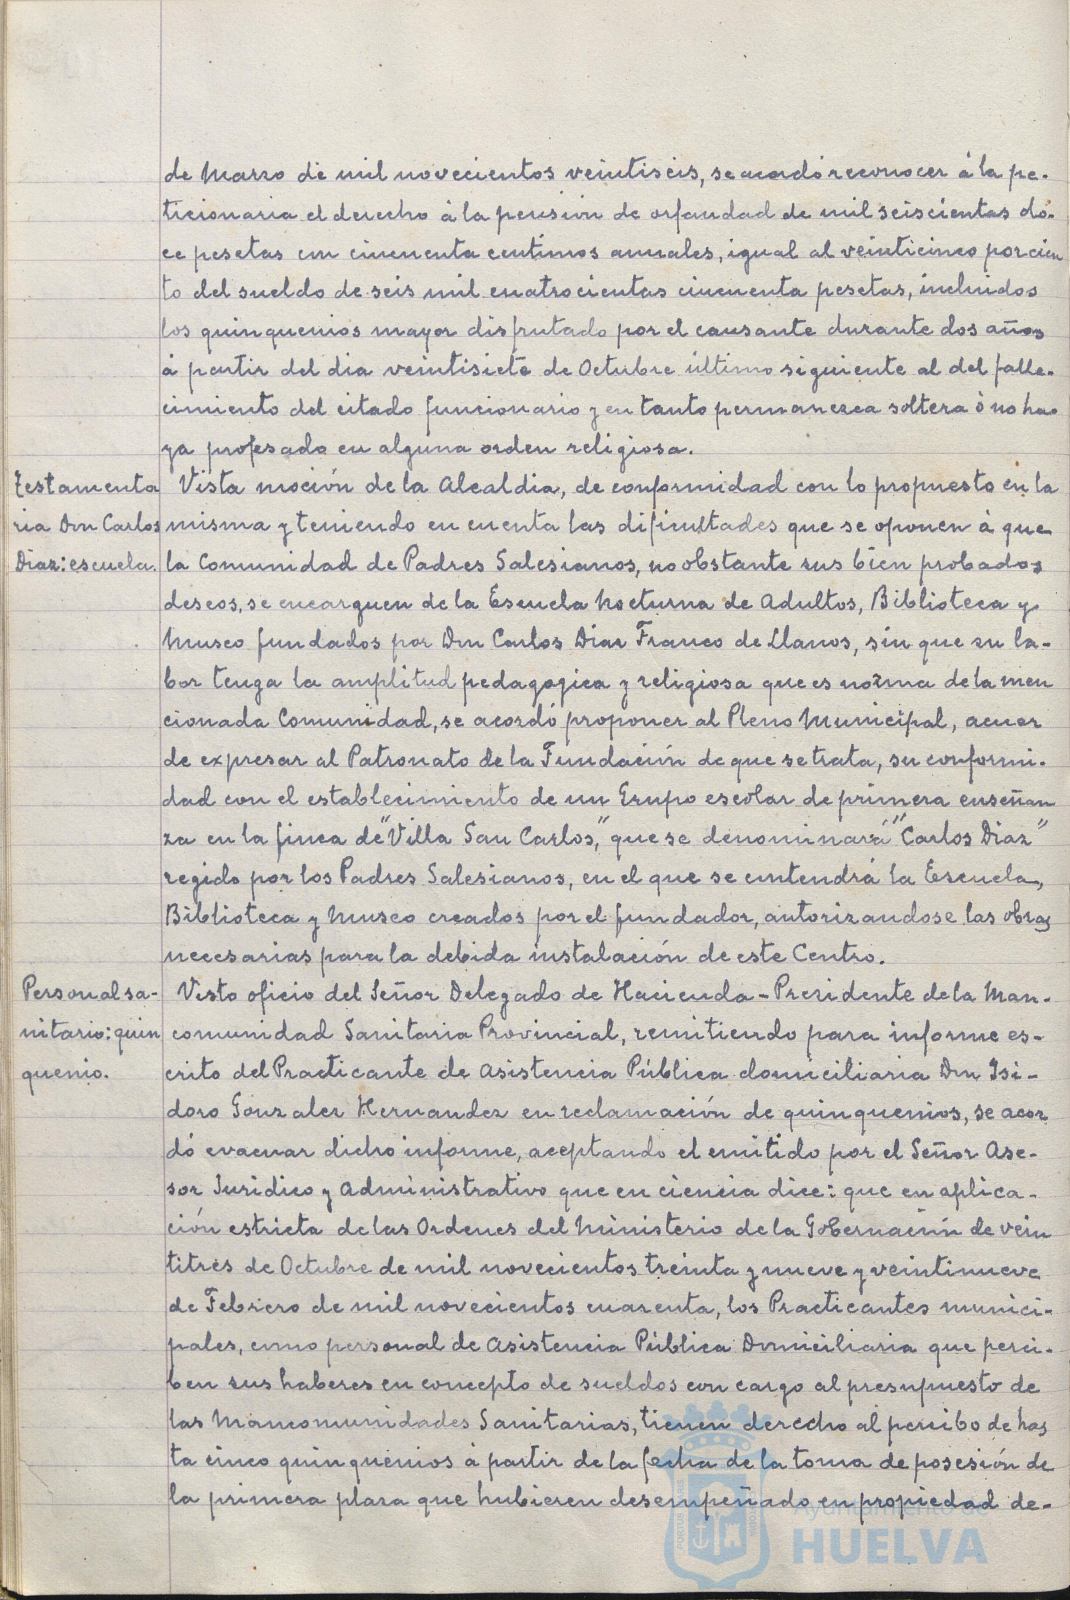 de Marzo de mil novecientos veintiseis, se acordó reconocer á la pe-
ticionaria el derecho á la pensión de orfandad de mil seiscientas do-
ce pesetas con cincuenta centimos anuales, igual al veinticinco por cien
to del sueldo de seis mil cuatrocientas cincuenta pesetas, incluidos
los quinquenios mayor disfrutado por el causante durante dos años
á partir del dia veintisiete de Octubre último siguiente al del falle-
cimiento del citado funcionario y en tanto permanezca soltera ó no ha-
ya profesado en alguna orden religiosa.
Testamenta
ria Don Carlos
Diaz: escuela.
Vista moción de la Alcaldia, de conformidad con lo propuesto en la
misma y teniendo en cuenta las dificultades que se oponen á que
la Comunidad de Padres Salesianos, no obstante sus bien probados
deseos, se encarguen de la Escuela nocturna de Adultos, Biblioteca y
Museo fundados por Don Carlos Diaz Franco de Llanos, sin que su la-
bor tenga la amplitud pedagogica y religiosa que es norma de la men
cionada Comunidad, se acordó proponer al Pleno Municipal, acuer
de expresar al Patronato de la Fundación de que se trata, su conformi-
dad con el establecimiento de un Grupo escolar de primera enseñan
za en la finca de "Villa San Carlos," que se denominará "Carlos Diaz"
regido por los Padres Salesianos, en el que se contendrá la Escuela,
Biblioteca y Museo creados por el fundador, autorizandose las obras
necesarias para la debida instalación de este Centro.
Personal sa-
nitario: quin
quenio.
Visto oficio del Señor Delegado de Hacienda-Presidente de la Man-
comunidad Sanitaria Provincial, remitiendo para informe es-
crito del Practicante de Asistencia Pública domiciliaria Don Isi-
doro Gonzalez Hernandez en reclamación de quinquenios, se acor
dó evacuar dicho informe, aceptando el emitido por el Señor Ase-
sor Juridico y Administrativo que en ciencia dice: que en aplica-
ción estricta de las Ordenes del Ministerio de la Gobernación de vein
titrés de Octubre de mil novecientos treinta y nueve y veintinueve
de Febrero de mil novecientos cuarenta, los Practicantes munici-
pales, como personal de Asistencia Pública Domiciliaria que perci-
ben sus haberes en concepto de sueldos con cargo al presupuesto de
las Mancomunidades Sanitarias, tienen derecho al percibo de has
ta cinco quinquenios á partir de la fecha de la toma de posesión de
la primera plaza que hubieren desempeñado en propiedad de-
Ayuntamiento de
HUELVA